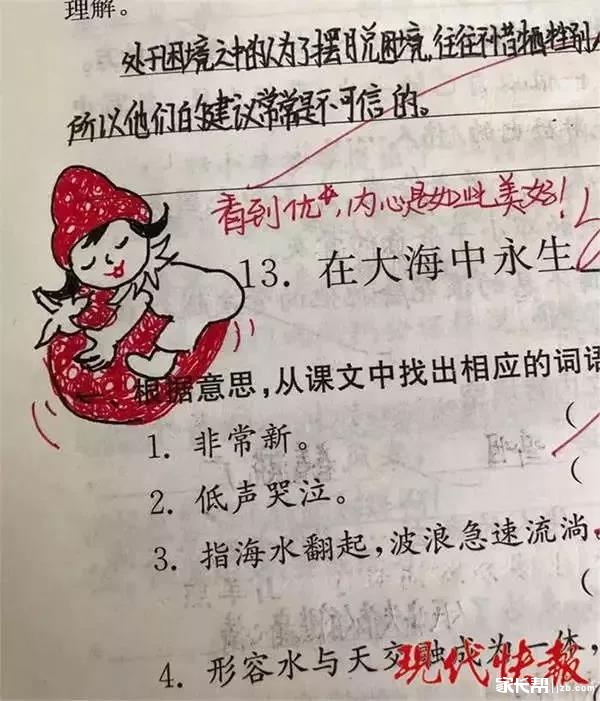 理解。
处于困境之中的人为了摆脱困境,往往不惜牺牲别人
所以他们的建议常常是不可信的。
看到优*,内心是如此美好!
13. 在大海中永生
根据意思,从课文中找出相应的词语
1. 非常新。 (
2. 低声哭泣。 (
3. 指海水翻起,波浪急速流淌。
(
4. 形容水与天交融成为一体,
现代快报
家长帮 jzb.com